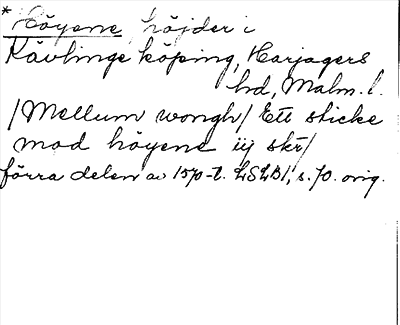 * Höyene, höjder i
Kävlinge köping, Harjagers
hd, Malm. l.
/Mellum wongh/ Ett sticke
mod höyene iij skr/
förra delen av 1570-t. LSLB1, s. 70. orig.